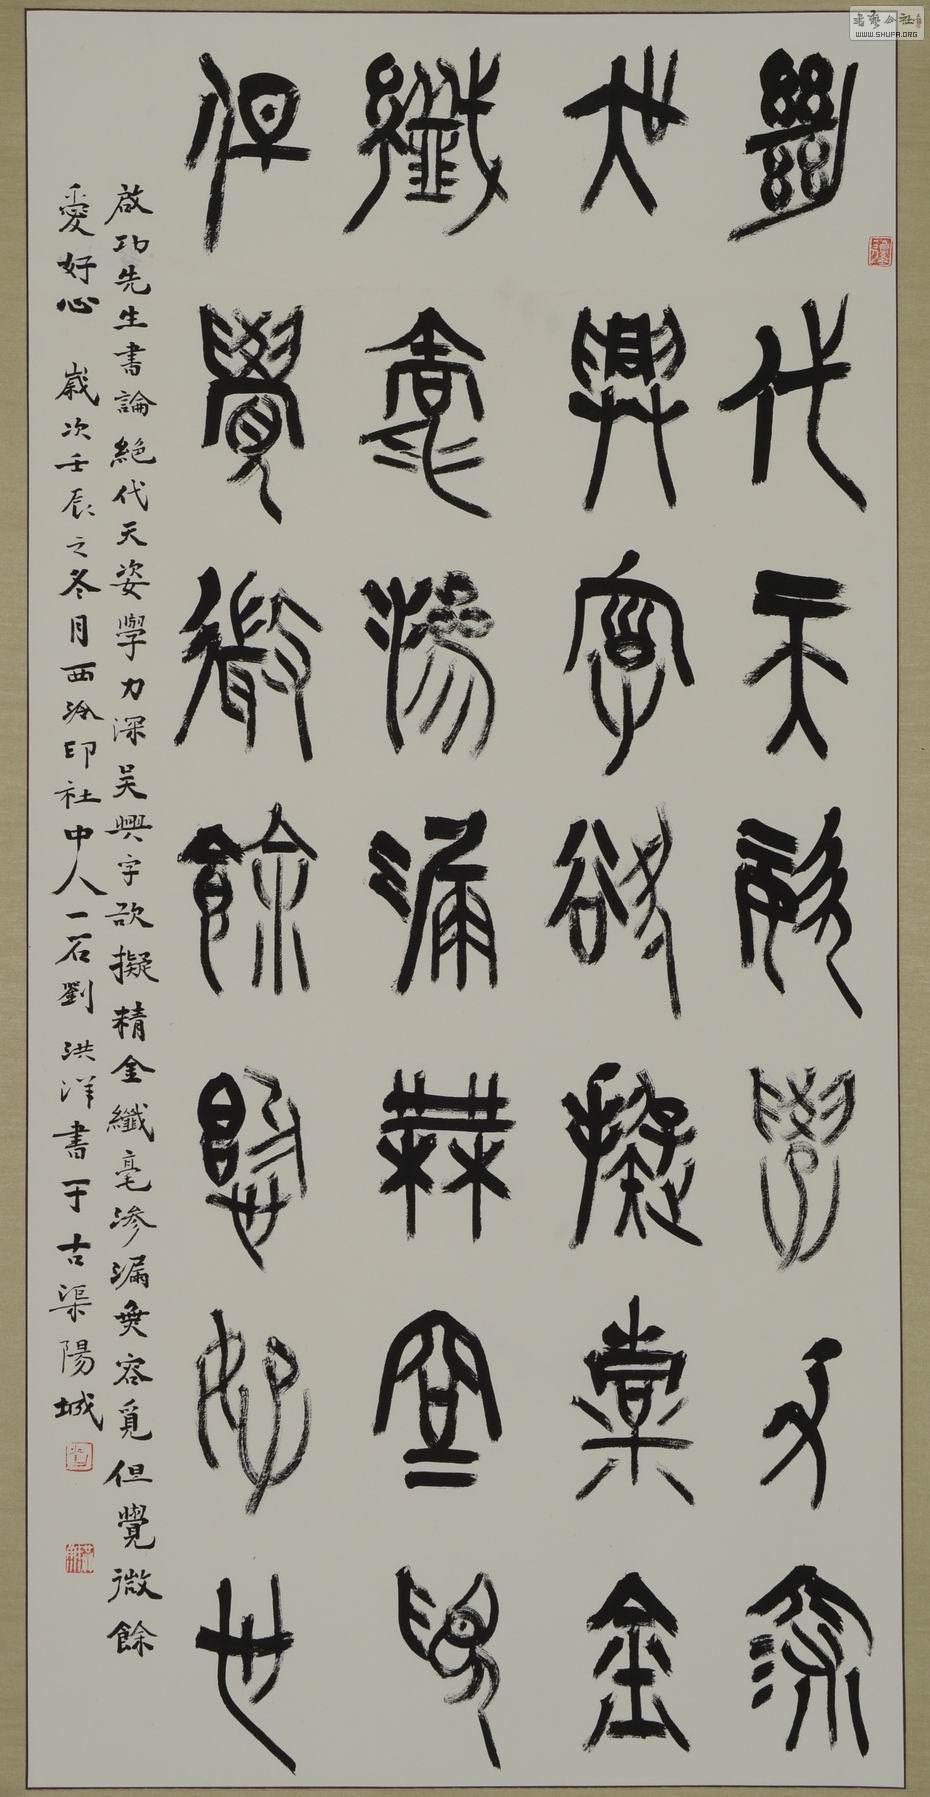 絕代天姿學力深
吳興字欲擬精金
纖毫滲漏無容覓
但覺微餘愛好心
啟功先生書論絕代天姿學力深吳興字欲擬精金纖毫滲漏無容覓但覺微餘
愛好心 歲次壬辰之冬月西泠印社中人一石劉洪洋書于古渠陽城
書藝公社
WWW.SHUFA.ORG